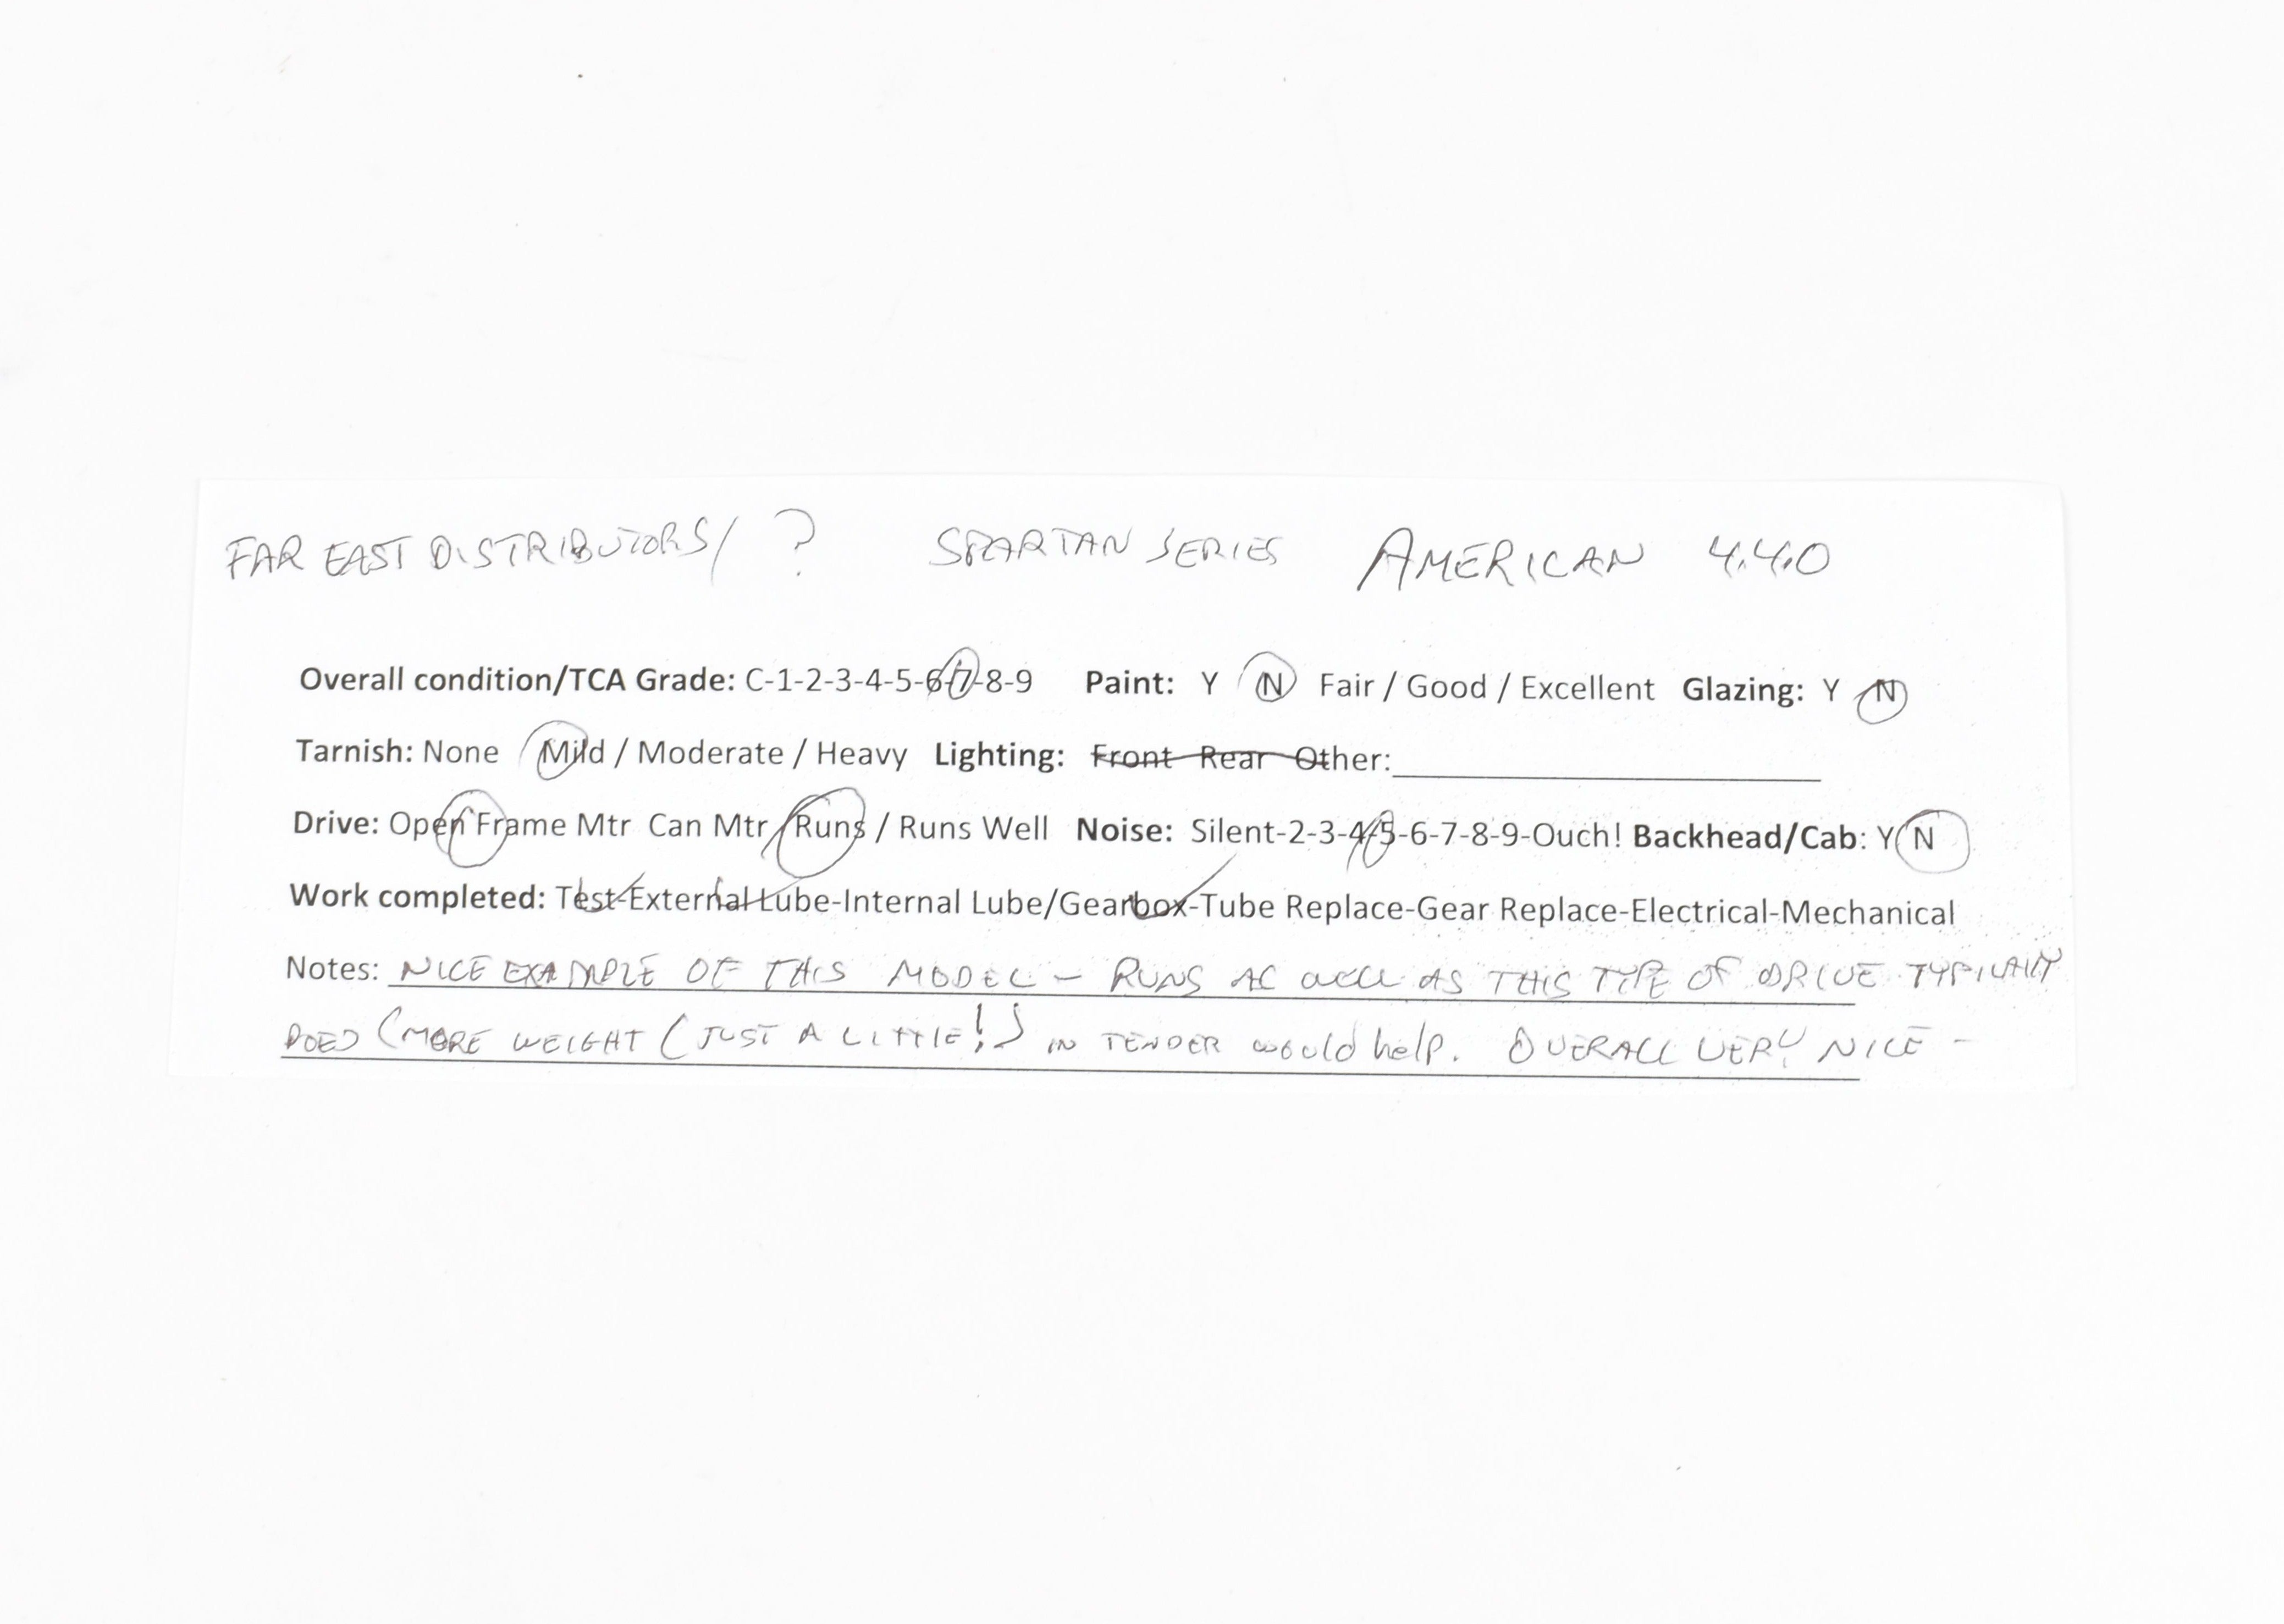 FAR EAST DISTRIBUTORS/ ? SPARTAN SERIES AMERICAN 4.4.0
Overall condition/TCA Grade: C-1-2-3-4-5-6-7-8-9 Paint: Y / N Fair / Good / Excellent Glazing: Y / N
Tarnish: None / Mild / Moderate / Heavy Lighting: Front Rear Other:
Drive: Open Frame Mtr Can Mtr / Runs / Runs Well Noise: Silent-2-3-4-5-6-7-8-9-Ouch! Backhead/Cab: Y/N
Work completed: Test-External Lube-Internal Lube/Gearbox-Tube Replace-Gear Replace-Electrical-Mechanical
Notes: NICE EXAMPLE OF THIS MODEL - RUNS AS WELL AS THIS TYPE OF DRIVE TYPICALLY
DOES (MORE WEIGHT (JUST A LITTLE!) IN TENDER would help. OVERALL VERY NICE -